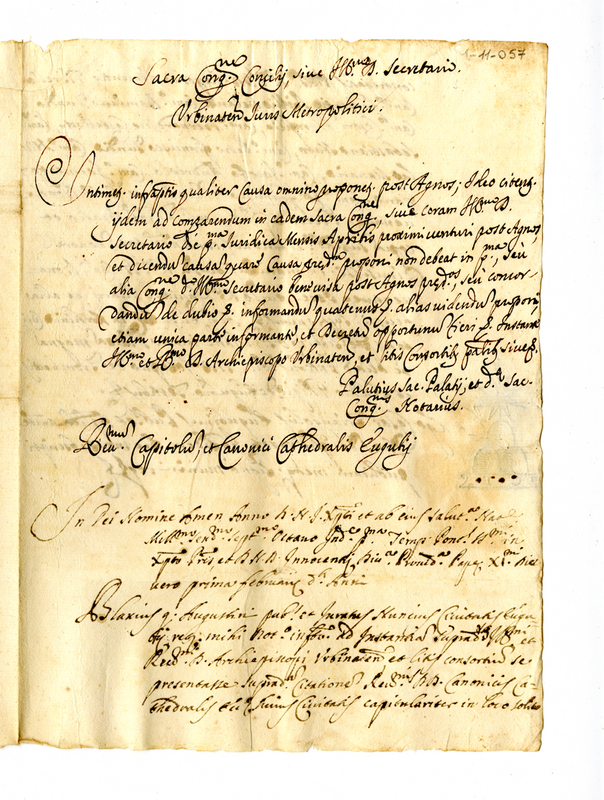 1-11-057
Sacra Cong.ne Concilij, sive Ill.mo D. Secretario.
Urbinaten Juris Metropolitici.
Intimet. infra[scri]ptis qualiter Causa omnino proponet. post Agnos; Ideo citent.
ijdem ad comparendum in eadem Sacra Cong.ne, sive coram Ill.mo D.
Secretario de p.ma Juridica Mensis Aprilis proximi venturi post Agnos,
et dicendu causa quare Causa pred.a proponi non debeat in p.ma, seu
alia Cong.ne d. Ill.mo Secretario benevisa post Agnos pred.os, seu concor-
dandu de dubio p. informandu quatenus p. alias videndu proponi,
etiam unica parte informante, et Decretu opportunu fieri p. Instante
Ill.mo et R.mo D. Archiepiscopo Urbinaten, et litis Consortib.
Palutius Sac. Palatij, et d. Sac.
Cong.nis Notarius.
Rev.mi Capitolu, et Canonici Cathedralis Eugubij
In Dei Nomine Amen Anno D. N. J. Xpti et ab eius salut.a Nat.e
Mill.mo Octavo Ind.e p.ma Temp. Pont.
Xpto Pris et D. N. D. Innocentij Div.a Provid.a Papae XI.mi Die
vero prima februarij d. Anni
Blasius q. Augustini pub. et Juratus Nuncius Civitatis Eugu-
bij mihi Not.o ad Instantia Suprad. Ill.mi et
R.mi D. Archiepiscopi Urbinaten et litis consortiu se
presentasse suprad.a Citatione Rev.mis D.D. Canonicis Ca-
thedralis huius Civitatis capitulariter in loco solito